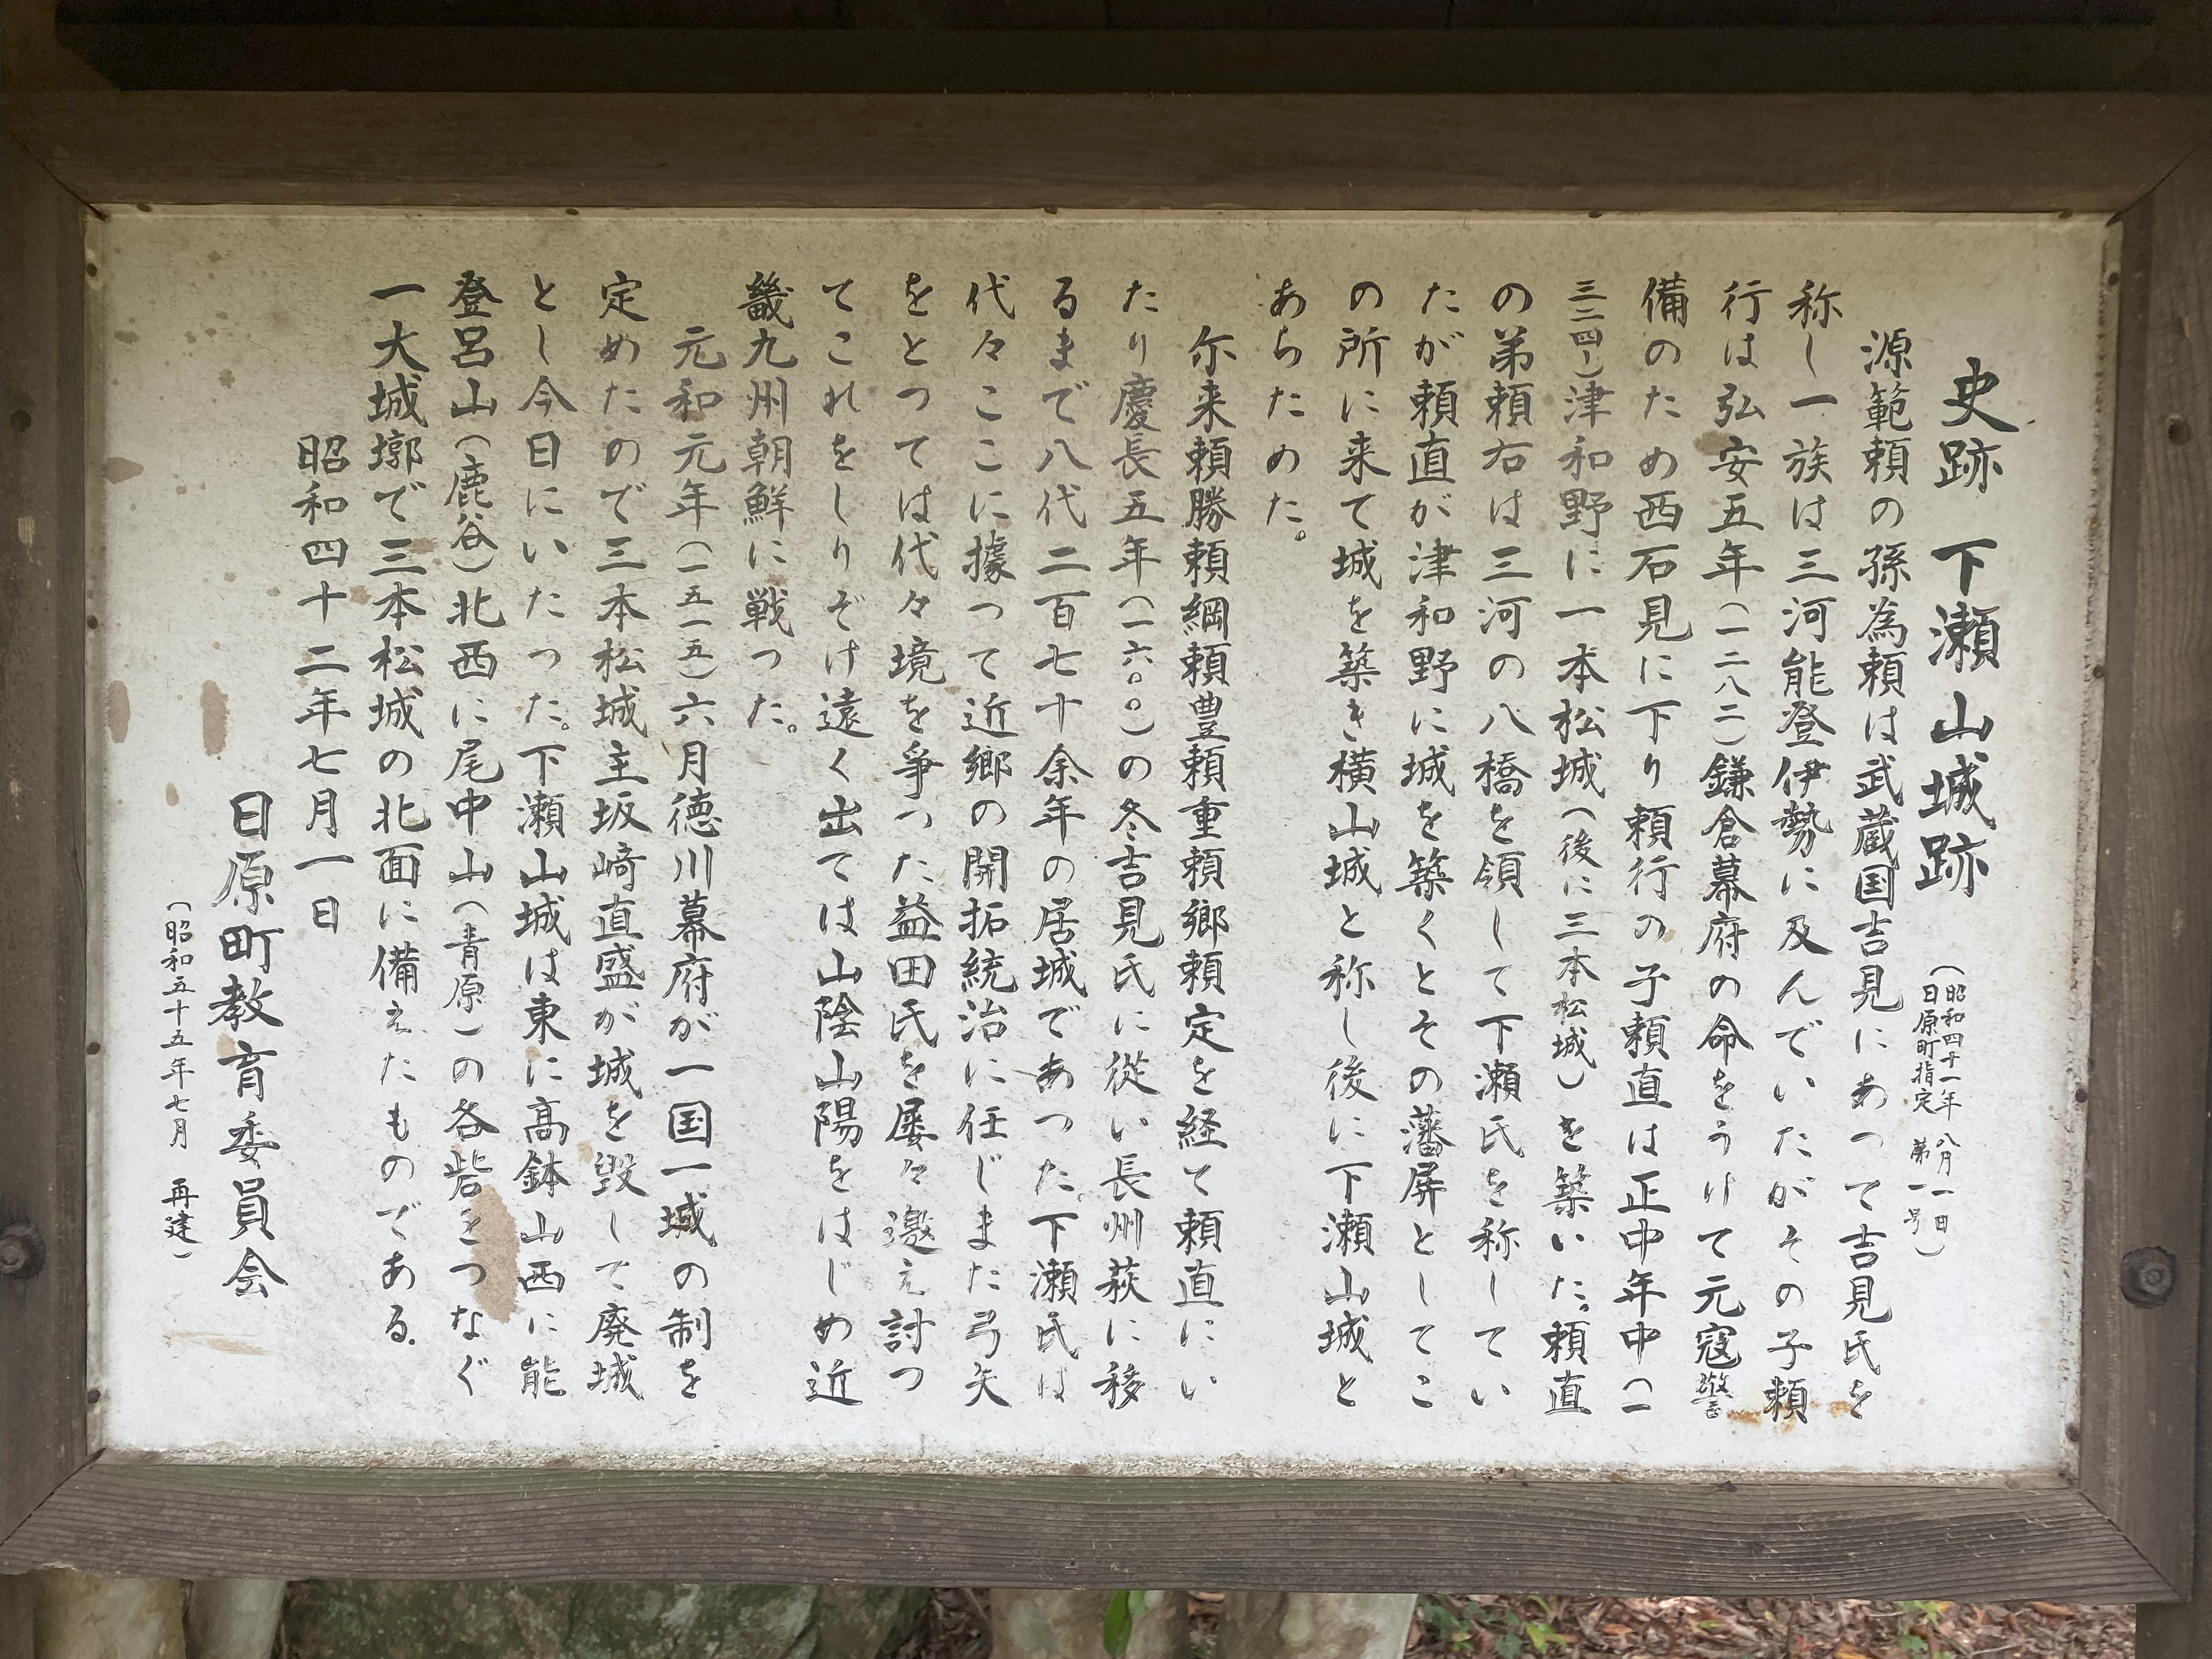 史跡 下瀬山城跡
(昭和四十一年八月一日
日原町指定 第一号)
源範頼の孫為頼は武蔵国吉見にあって吉見氏を
称し一族は三河能登伊勢に及んでいたがその子頼
行は弘安五年(一二八二)鎌倉幕府の命をうけて元寇警
備のため西石見に下り頼行の子頼直は正中年中(一
三二四)津和野に一本松城(後に三本松城)を築いた。頼直
の弟頼右は三河の八橋を領して下瀬氏を称してい
たが頼直が津和野に城を築くとその藩屏としてこ
の所に来て城を築き横山城と称し後に下瀬山城と
あらためた。
尓来頼勝頼綱頼豊頼重頼郷頼定を経て頼直にい
たり慶長五年(一六〇〇)の冬吉見氏に從い長州萩に移
るまで八代二百七十余年の居城であった。下瀬氏は
代々ここに據って近郷の開拓統治に任じまた弓矢
をとっては代々境を爭った益田氏を屡々邀え討つ
てこれをしりぞけ遠く出ては山陰山陽をはじめ近
畿九州朝鮮に戦った。
元和元年(一五一五)六月徳川幕府が一国一城の制を
定めたので三本松城主坂﨑直盛が城を毀して廃城
とし今日にいたった。下瀬山城は東に高鉢山西に能
登呂山(鹿谷)北西に尾中山(青原)の各砦をつなぐ
一大城墎で三本松城の北面に備えたものである。
昭和四十二年七月一日
日原町教育委員会
(昭和五十五年七月 再建)